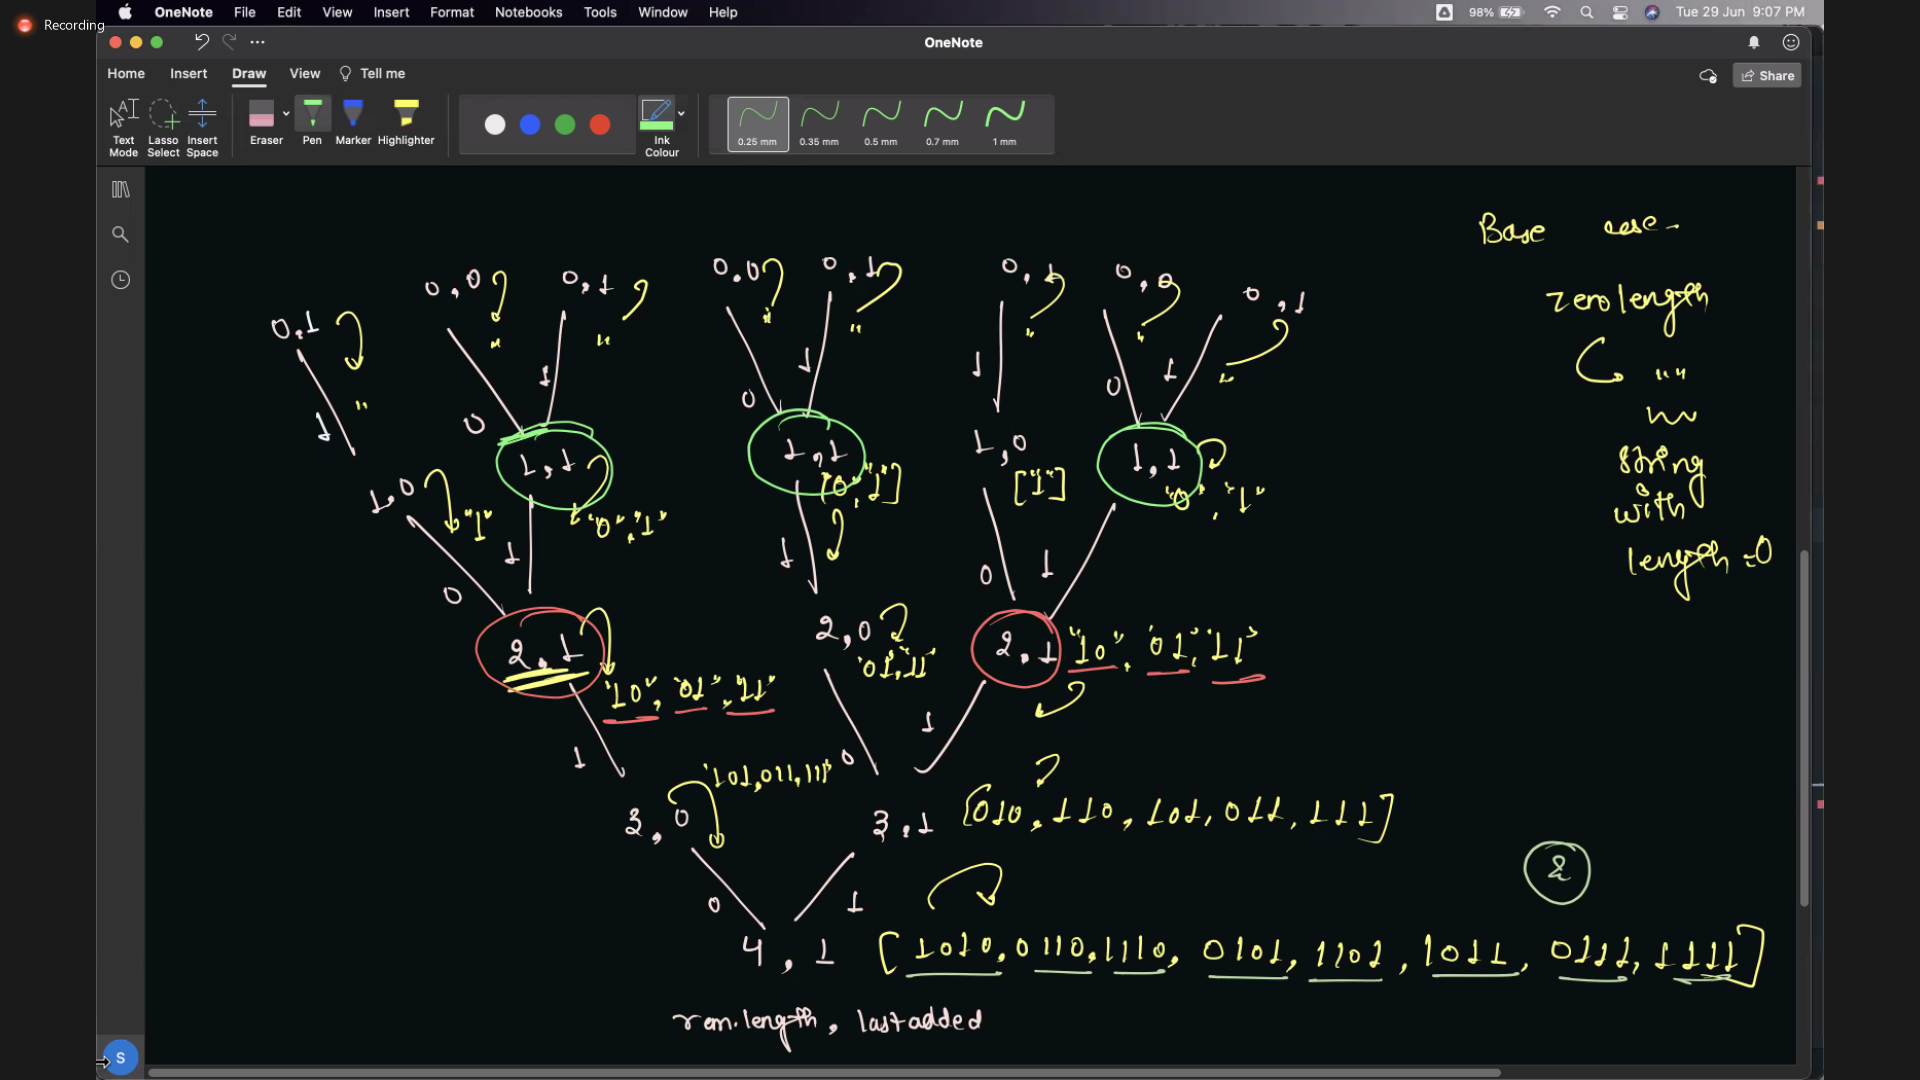 Recording
OneNote File Edit View Insert Format Notebooks Tools Window Help
98% Tue 29 Jun 9:07 PM
OneNote
Home Insert Draw View Tell me
Share
Text Mode
Lasso Select
Insert Space
Eraser
Pen
Marker
Highlighter
Ink Colour
0.25 mm
0.35 mm
0.5 mm
0.7 mm
1 mm
Base case-
0,0 0,1 0,0 0,1 0,1 0,0 0,1
zero length
0,1
" " " " " " "
" "
0 1 0 1 1 0 1
"
1
1,1 1,1 1,0 1,1
string
1,0 "1" "0","1" ["0","1"] ["1"] "0","1"
with
length=0
0 1 1 0 1
2,1 2,0 2,1 "10", "01", "11"
"10", "01", "11" "01,11"
1 0 1
"101,011,111"
3,0 3,1 [010, 110, 101, 011, 111]
2
0 1
4,1 [1010, 0110, 1110, 0101, 1101, 1011, 0111, 1111]
rem.length, last added
S